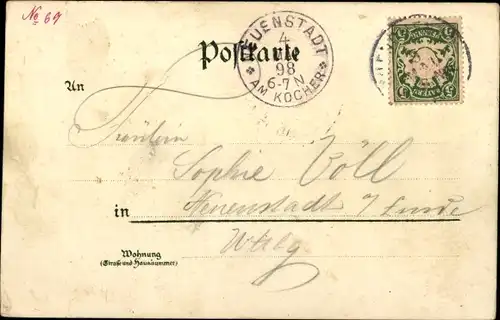 No 69
Postkarte
NEUENSTADT
4
98
6-7N
* AM KOCHER *
BAYERN
An
Fräulein
Sophie Völl
in Neuenstadt
Wohnung
(Straße und Hausnummer)